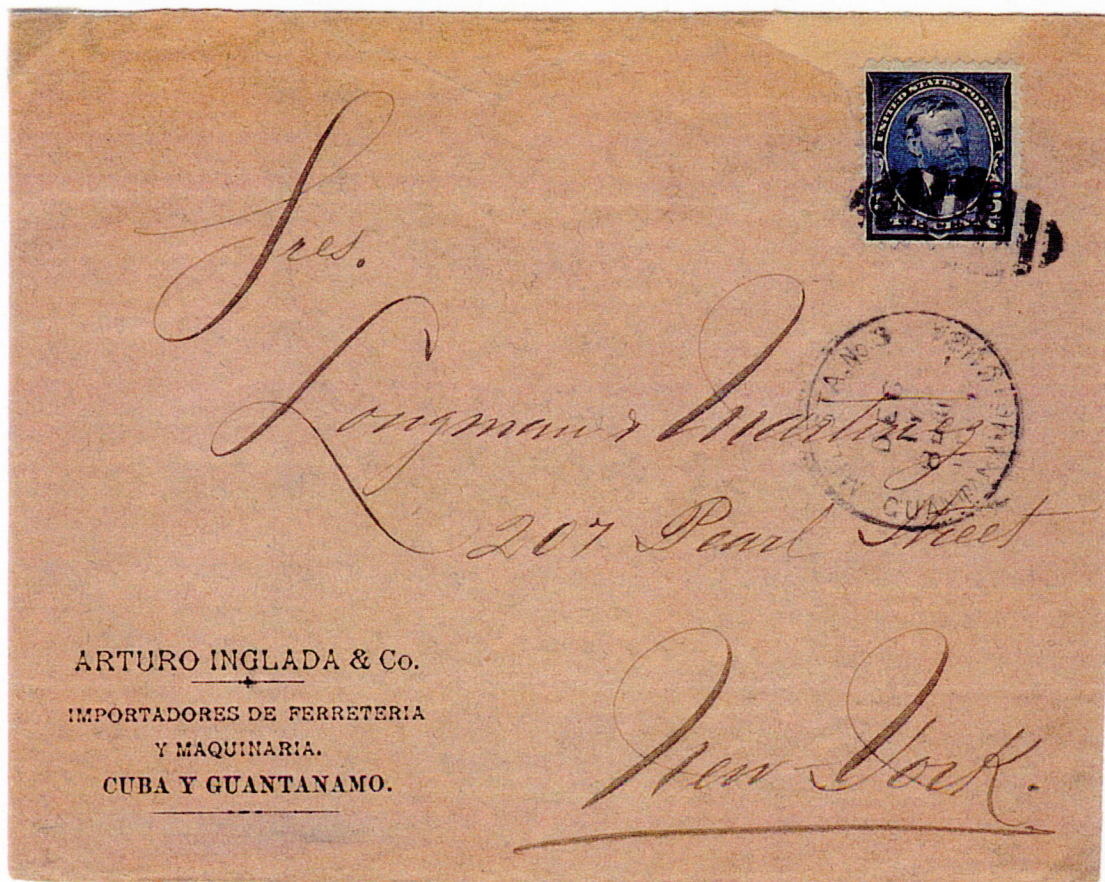 UNITED STATES POSTAGE
5
Sres.
Longman & Martinez
207 Pearl Street
New-York.
MIL. STA. No. 3
DEC
GUANTANAMO
ARTURO INGLADA & Co.
IMPORTADORES DE FERRETERIA
Y MAQUINARIA.
CUBA Y GUANTANAMO.